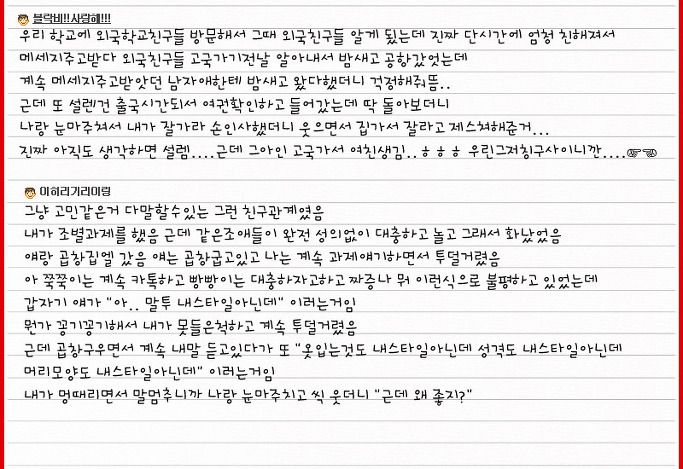 블락비!!사랑해!!!
우리 학교에 외국학교친구들 방문해서 그때 외국친구들 알게 됬는데 진짜 단시간에 엄청 친해져서
메세지주고받다 외국친구들 고국가기전날 알아내서 밤새고 공항갔엇는데
계속 메세지주고받앗던 남자애한테 밤새고 왔다했더니 걱정해줘뜸..
근데 또 설렌건 출국시간되서 여권확인하고 들어갔는데 딱 돌아보더니
나랑 눈마주쳐서 내가 잘가라 손인사했더니 웃으면서 집가서 잘라고 제스쳐해준거...
진짜 아직도 생각하면 설렘....근데 그아인 고국가서 여친생김..ㅎㅎㅎ 우린그저칭구사이니깐....☞☜
이히리기리미링
그냥 고민같은거 다말할수있는 그런 친구관계였음
내가 조별과제를 했음 근데 같은조애들이 완전 성의없이 대충하고 놀고 그래서 화났었음
얘랑 곱창집엘 갔음 얘는 곱창굽고있고 나는 계속 과제얘기하면서 투덜거렸음
아 쭉쭉이는 계속 카톡하고 빵빵이는 대충하자고하고 짜증나 뭐 이런식으로 불평하고 있었는데
갑자기 얘가 "아.. 말투 내스타일아닌데" 이러는거임
뭔가 꽁기꽁기해서 내가 못들은척하고 계속 투덜거렸음
근데 곱창구우면서 계속 내말 듣고있다가 또 "옷입는것도 내스타일아닌데 성격도 내스타일아닌데
머리모양도 내스타일아닌데" 이러는거임
내가 멍때리면서 말멈추니까 나랑 눈마주치고 씩 웃더니 "근데 왜 좋지?"